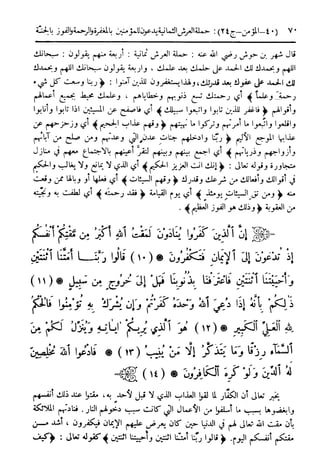 ٧٠ (٤٠ـــ المؤمن ــ ج٢٤): حملة العرش الثمانية يدعون للمؤمنين بالمغفرة والرحمة والفوز بالجنّة
قال شهر بن حوش رضي الله عنه: حملة العرش ثمانية: أربعة منهم يقولون: سبحانك
اللهم وبحمدك لك الحمد على حلمك بعد علمك، وأربعة يقولون سبحانك اللهم وبحمدك
لك الحمد على عفوك بعد قدرتك، ولهذا يستغفرون للذين آمنوا: ﴿ربنا وسعت كل شيء
رحمة وعلماً﴾ أي رحمتك تسع ذنوبهم وخطاياهم، وعلمك محيط بجميع أعمالهم
وأقوالهم ﴿فاغفر للذين تابوا واتبعوا سبيلك﴾ أي فاصفح عن المسيئين اذا تابوا وأنابوا
وأقلعوا واتبعوا ما أمرتهم وتركوا ما نهيتهم ﴿وقهم عذاب الجحيم﴾ أي وزحزحهم عن
عذابها الموجع الأليم ﴿ربنا وادخلهم جنات عدن التي وعدتهم ومن صلح من آبائهم
وأزواجهم وذرياتهم﴾ أي اجمع بينهم وبينهم لتقرَّ أعينهم بالاجتماع معهم في منازل
متجاورة وقوله تعالى: ﴿إنك أنت العزيز الحكيم﴾ أي الذي لا يمانع ولا يغالب والحكيم
في أقوالك وأفعالك من شرعك وقدرك ﴿وقهم السيئات﴾ أي فعلها أو وبالها ممن وقعت
منه ﴿ومن تق السيئات يومئذ﴾ أي يوم القيامة ﴿فقد رحمته﴾ أي لطفت به ونجّيته
من العقوبة ﴿وذلك هو الفوز العظيم﴾.
إِنَّ الَّذِينَ كَفَرُوا يُنَادَوْنَ لَمَقْتُ اللَّهِ أَكْبَرُ مِن مَّقْتِكُمْ أَنفُسَكُمْ
إِذْ تُدْعَوْنَ إِلَى الْإِيمَانِ فَتَكْفُرُونَ (١٠) قَالُوا رَبَّنَا أَمَتَّنَا اثْنَتَيْنِ
وَأَحْيَيْتَنَا اثْنَتَيْنِ فَاعْتَرَفْنَا بِذُنُوبِنَا فَهَلْ إِلَى خُرُوجٍ مِن سَبِيلٍ (١١)
ذَلِكُم بِأَنَّهُ إِذَا دُعِيَ اللَّهُ وَحْدَهُ كَفَرْتُمْ وَإِن يُشْرَكْ بِهِ تُؤْمِنُوا فَالْحُكْمُ
لِلَّهِ الْعَلِيِّ الْكَبِيرِ (١٢) هُوَ الَّذِي يُرِيكُمْ آيَاتِهِ وَيُنَزِّلُ لَكُم مِنَ
السَّمَاءِ رِزْقًا وَمَا يَتَذَكَّرُ إِلَّا مَن يُنِيبُ (١٣) فَادْعُوا اللَّهَ مُخْلِصِينَ
لَهُ الدِّينَ وَلَوْ كَرِهَ الْكَافِرُونَ (١٤)
يخبر تعالى أن الكفّار لما لقوا العذاب الذي لا قبل لأحد به، مقتوا عند ذلك أنفسهم
وابغضوها بسبب ما أسلفوا من الأعمال التي كانت سبب دخولهم النار. فنادتهم الملائكة
بأن مقت الله تعالى لهم في الدنيا حين كان يعرض عليهم الإيمان فيكفرون، أشد من
مقتكم أنفسكم اليوم. ﴿قالوا ربنا أمتنا اثنتين وأحييتنا اثنتين﴾ كقوله تعالى: ﴿كيف